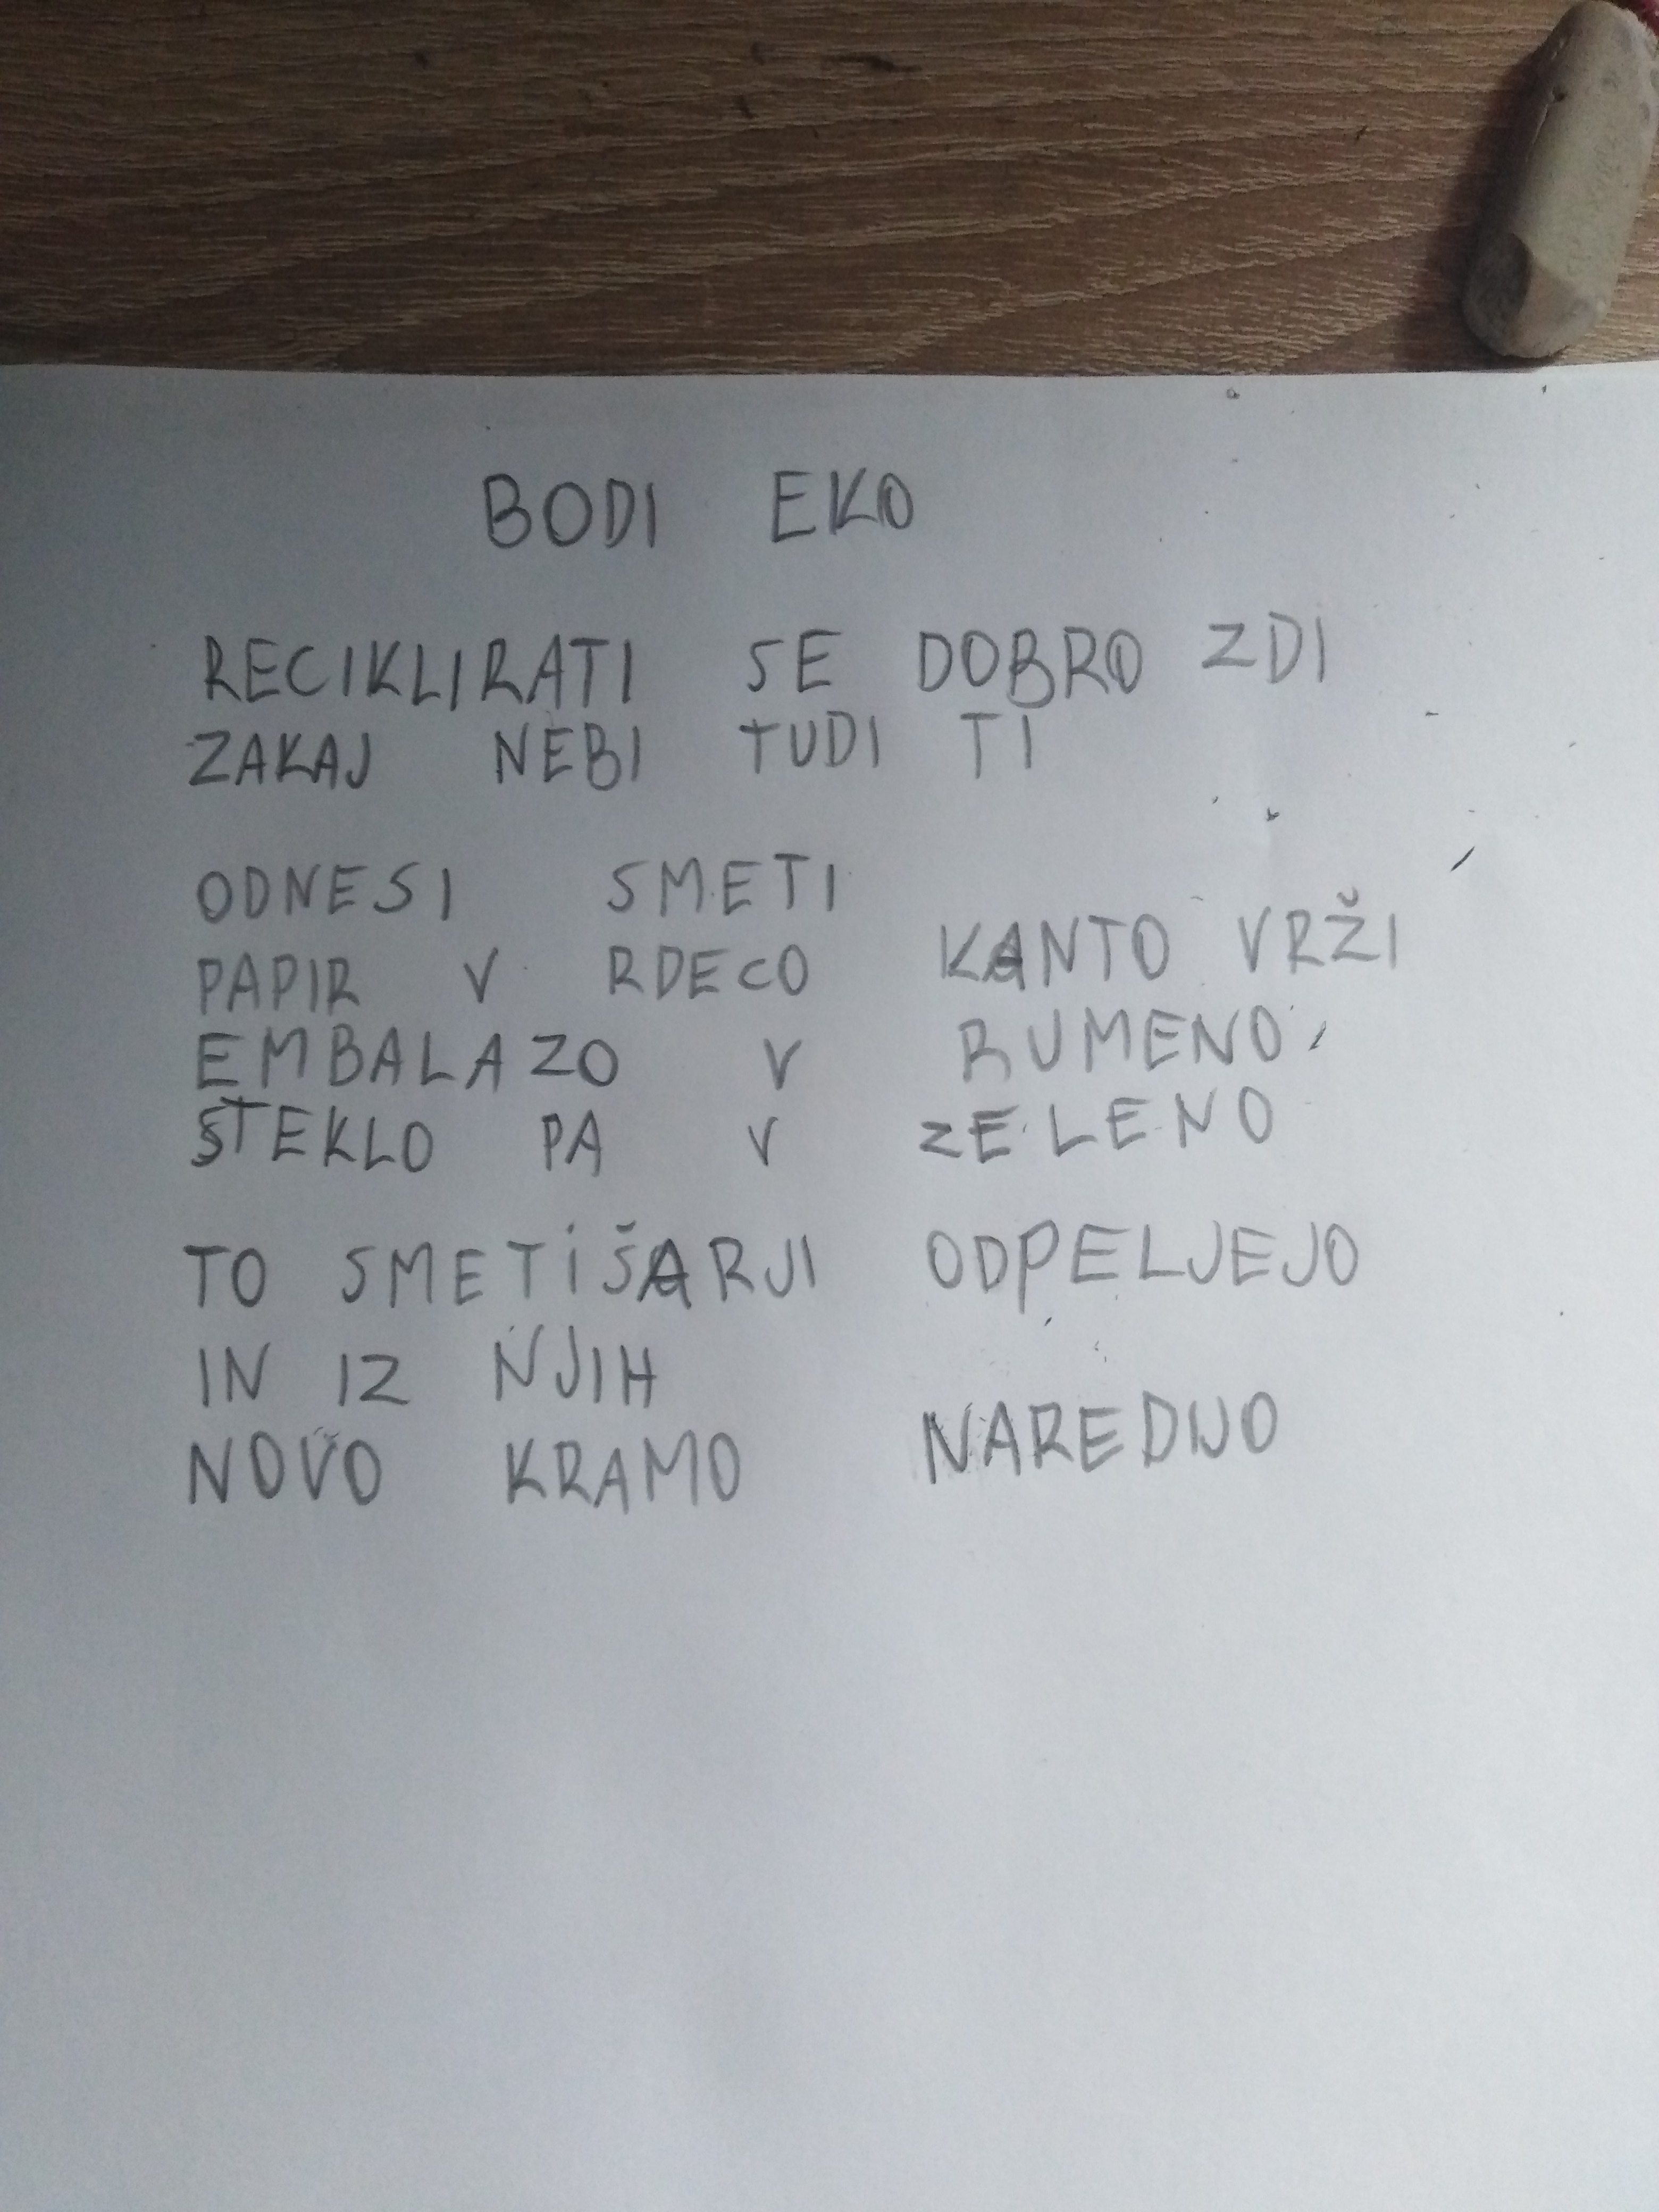 BODI EKO
RECIKLIRATI SE DOBRO ZDI
ZAKAJ NEBI TUDI TI
ODNESI SMETI
PAPIR V RDECO KANTO VRŽI
EMBALAZO V RUMENO
STEKLO PA V ZELENO
TO SMETIŠARJI ODPELJEJO
IN IZ NJIH
NOVO KRAMO NAREDIJO